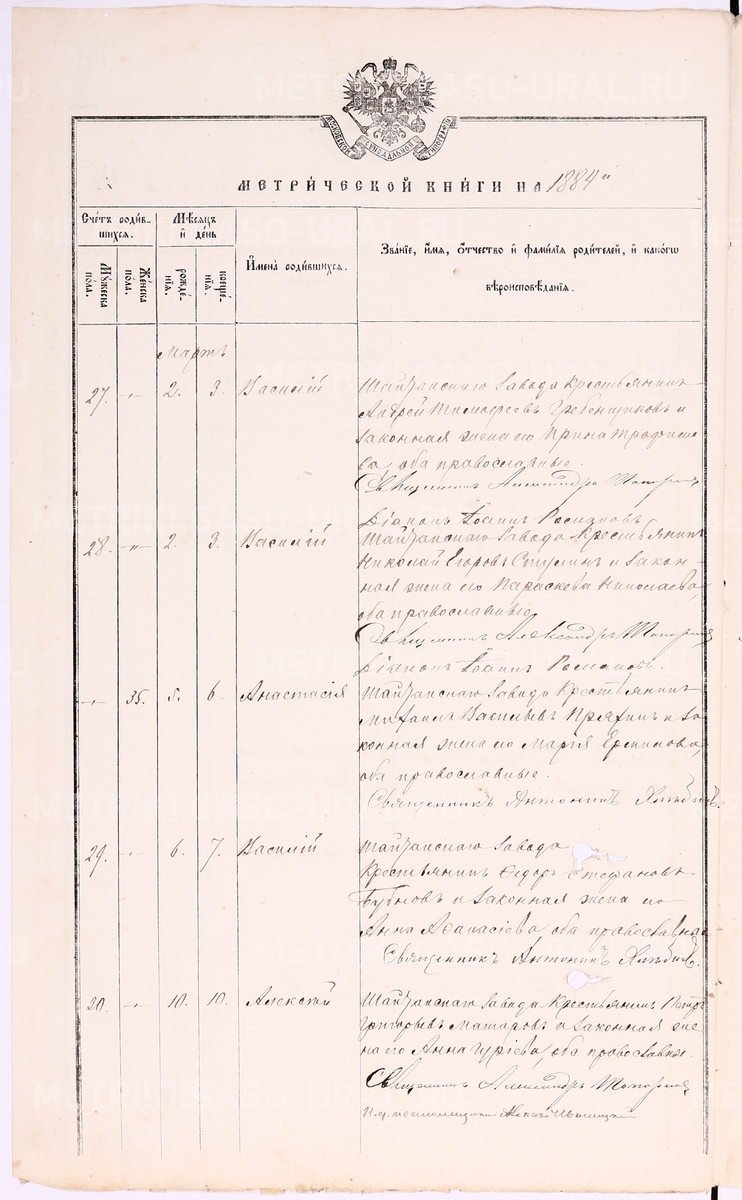 МОСКОВСКОЙ СѴНОДАЛЬНОЙ ТИПОГРАФІИ
МЕТРИ́ЧЕСКОЙ КНИ́ГИ НА 1884й
Сче́тъ роди́в-
шихся.
Му́жеска
пола.
Же́нска
пола.
Мѣ́сяцъ
и́ де́нь
рожде́-
нїя.
креще́-
нїя.
И́мена̀ роди́вшихся.
Зва́нїе, и́мя, ѻ҆́тчество и́ фами́лїя роди́телей, и́ како́гѡ
вѣроисповѣ́данїя.
Мартъ
27. -"- 2. 3. Василій
Шайтанскаго Завода Крестьянинъ
Андрей Тимофеевъ Гребенщиковъ и
законная жена его Ирина Трофимо
ва, оба православные.
Священникъ Александръ Топорковъ
Діаконъ Іоаннъ
28. -"- 2. 3. Василій
Шайтанскаго Завода Крестьянинъ
Николай Егоровъ Ступинъ и закон-
ная жена его Параскева Николаева,
оба православные
Священникъ Александръ Топорковъ
Діаконъ Іоаннъ
-"- 35. 5. 6. Анастасія
Шайтанскаго Завода Крестьянинъ
Михаилъ Васильевъ Пряхинъ и за-
конная жена его Марія Ермилова,
оба православные.
Священникъ Антонинъ
29. -"- 6. 7. Василій
Шайтанскаго Завода
Крестьянинъ Ѳедоръ Стефановъ
Бубновъ и законная жена его
Анна Аѳанасіева, оба православные
Священникъ Антонинъ
20. -"- 10. 10. Алексѣй
Шайтанскаго Завода Крестьянинъ Петръ
Григорьевъ Макаровъ и законная же
на его Анна Гуріева, оба православные.
Священникъ Александръ Топорковъ
И. д. псаломщика